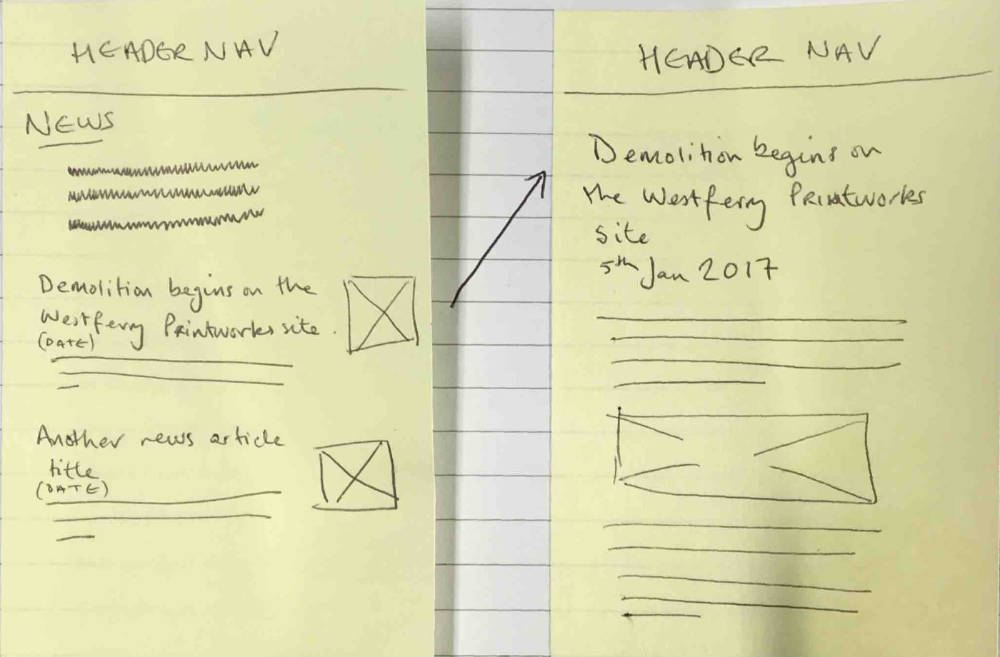 HEADER NAV
NEWS
Demolition begins on the
Westferry Printworks site.
(DATE)
Another news article
title
(DATE)
HEADER NAV
Demolition begins on
the Westferry Printworks
site
5th Jan 2017